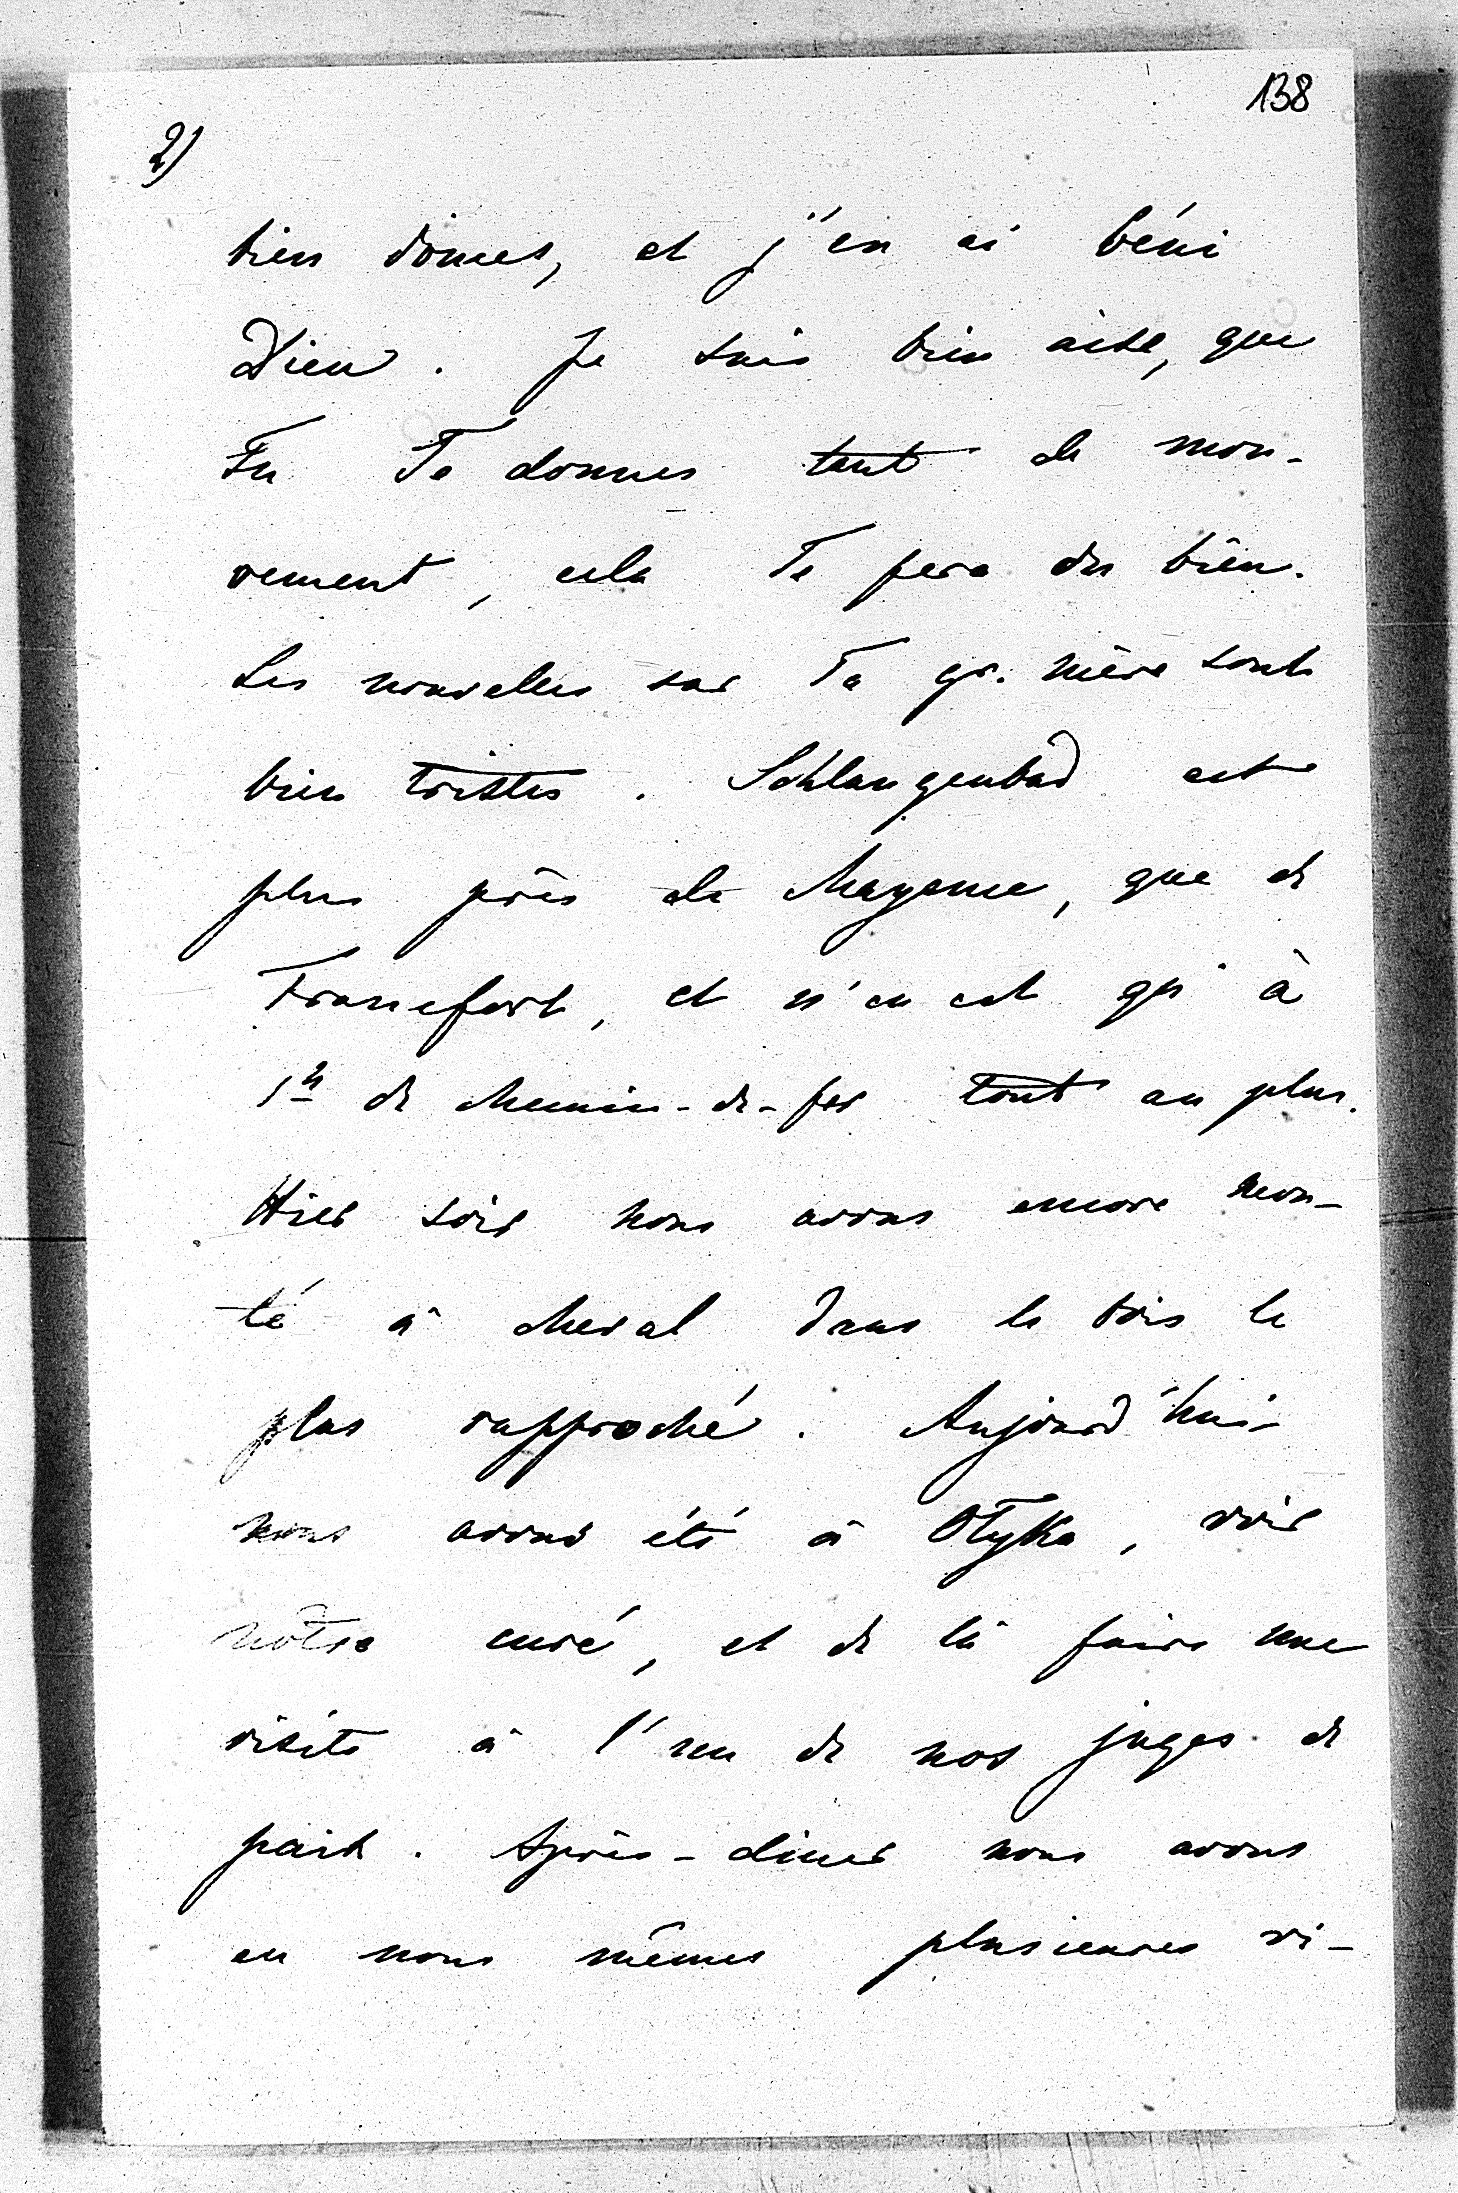 138
2)
bien douces, et j'en ai béni
Dieu. Je suis bien aise, que
Tu Te donnes tant de mou-
vement, cela Te fera du bien.
Les nouvelles sur Ta gr. mère sont
bien tristes. Schlangenbad est
plus près de Mayence, que de
Francfort, et n'en est qu'à
1h de chemin-de-fer tout au plus.
Hier soir nous avons encore mon-
té à cheval dans le bois le
plus rapproché. Aujourd'hui
nous avons été à Olyka, voir
notre curé, et de là faire une
visite à l'un de nos juges de
paix. Après-diner nous avons
eu nous mêmes plusieures vi-